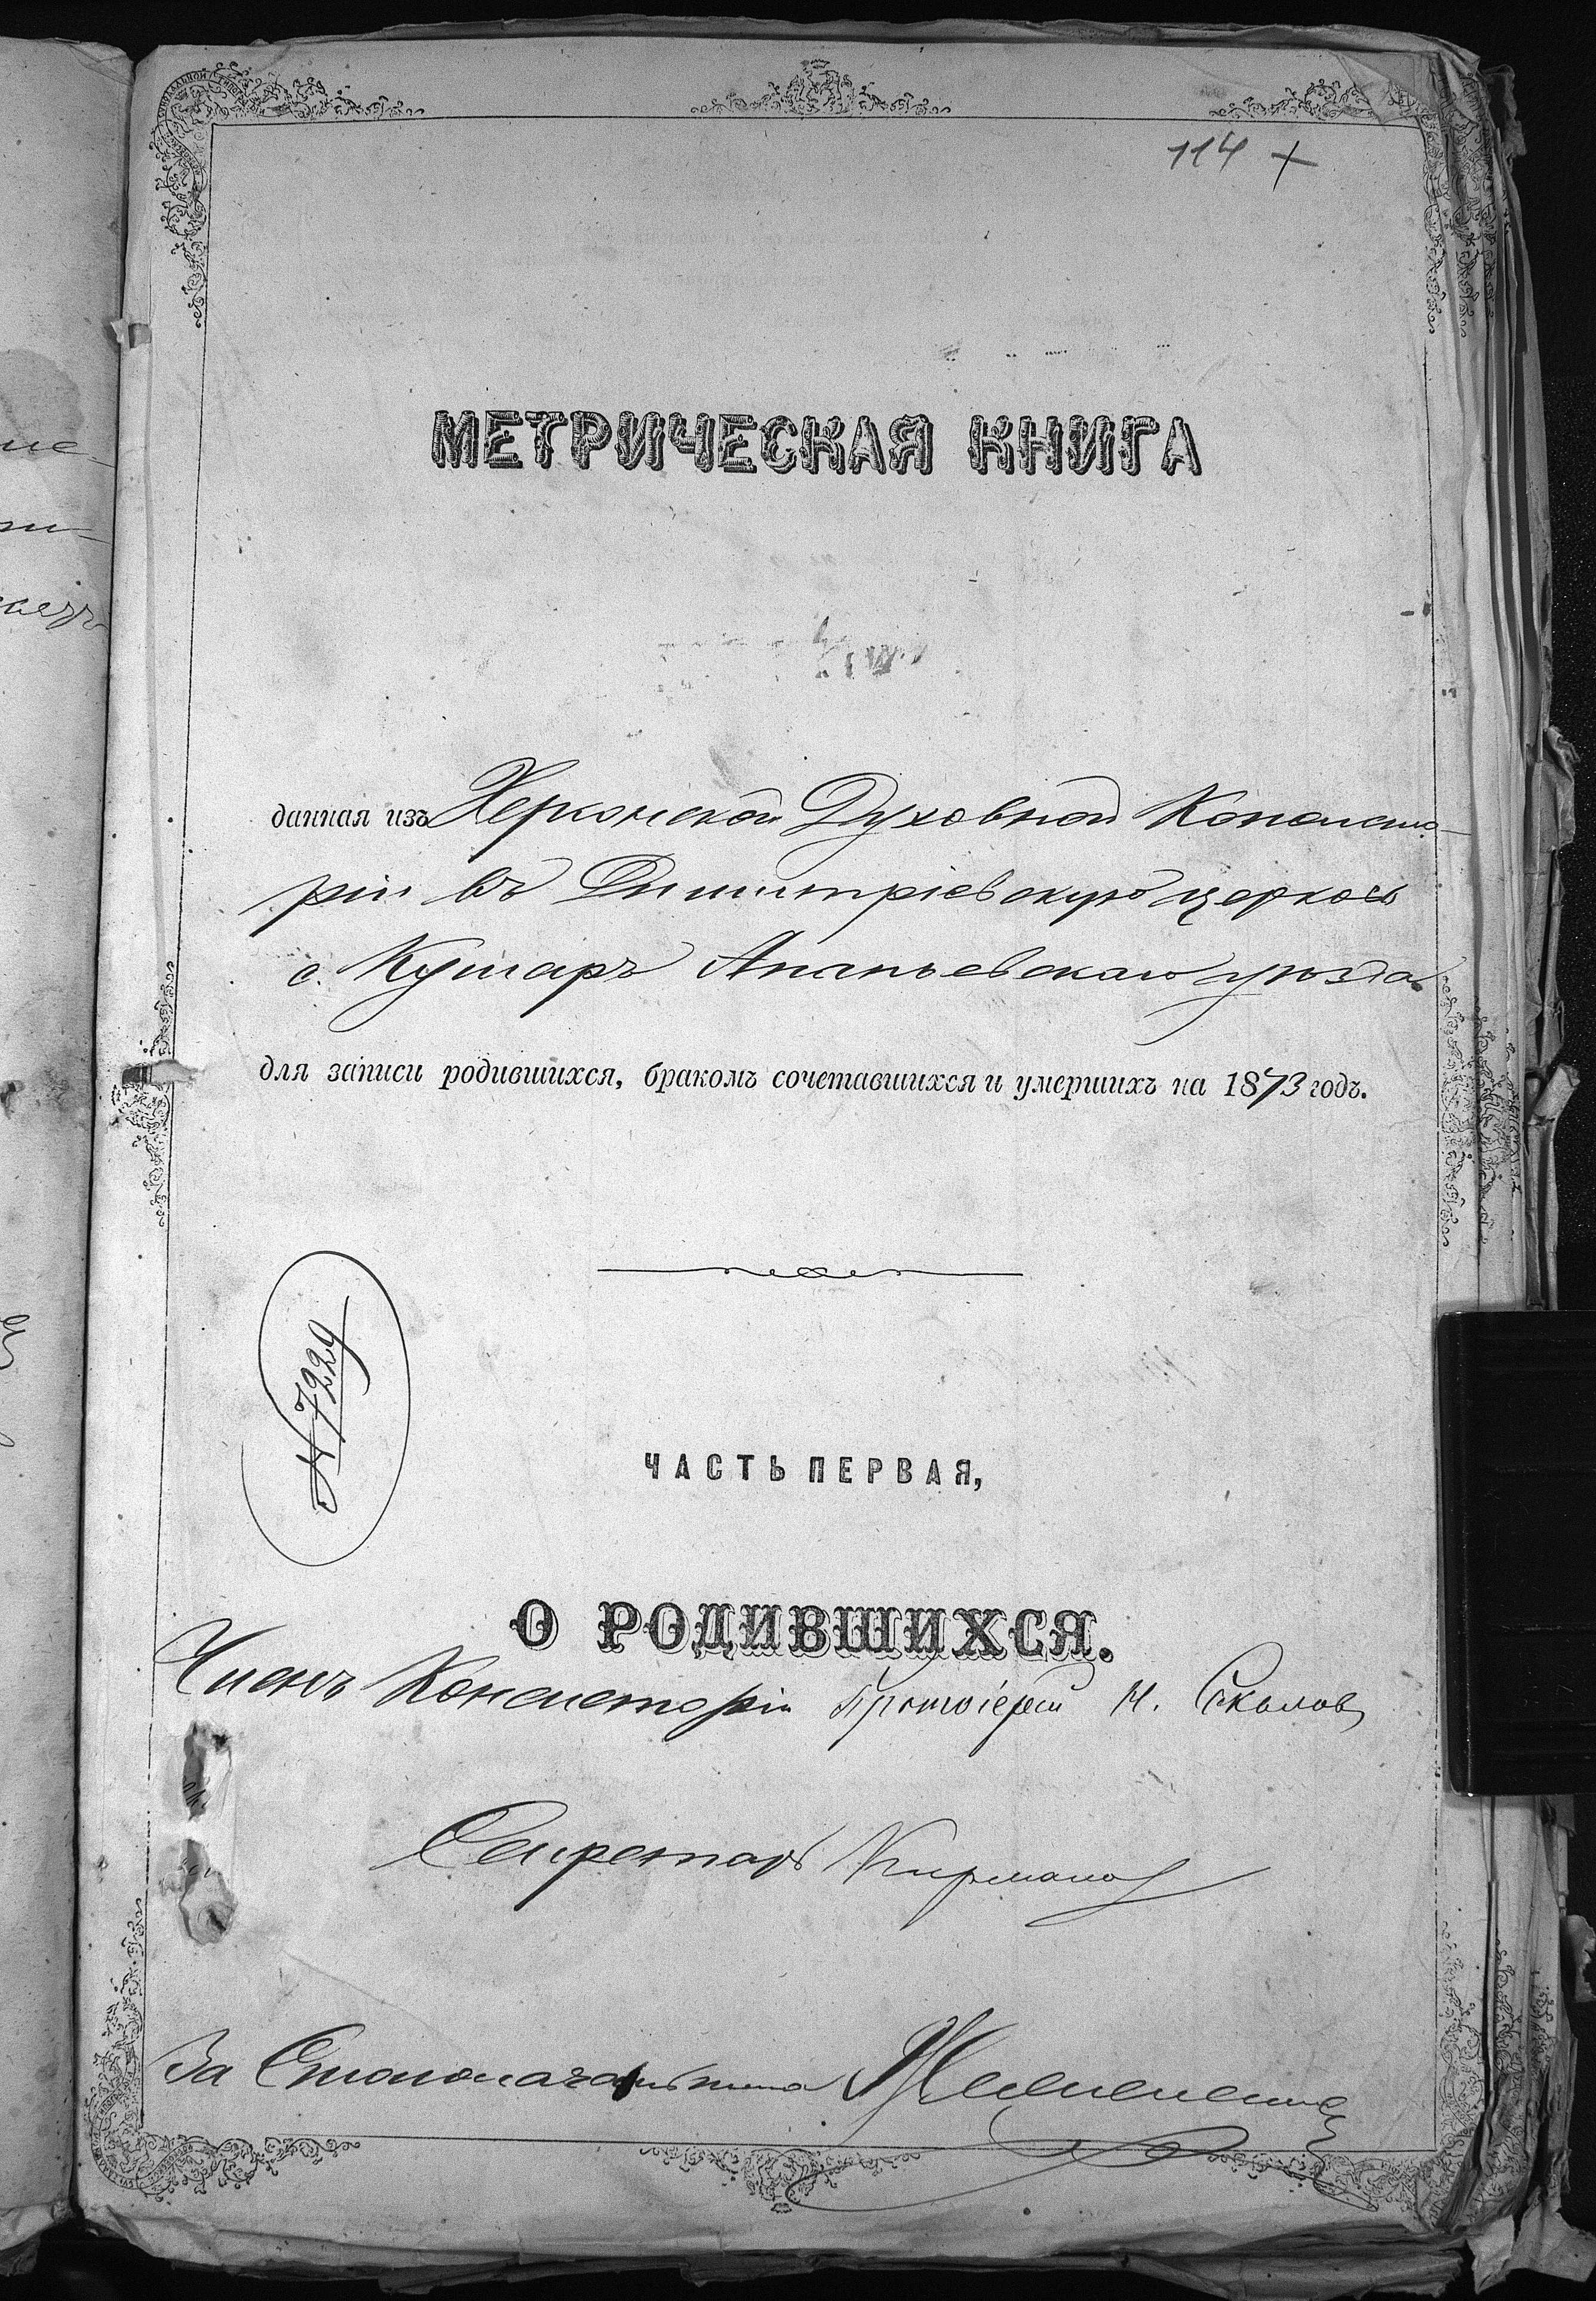 114 +
МЕТРИЧЕСКАЯ КНИГА
данная изъ Херсонской Духовной Консисто-
ріи въ Димитріевскую церковь
с. Кумаръ Ананьевскаго уѣзда
для записи родившихся, бракомъ сочетавшихся и умершихъ на 1873 годъ.
№ 7229
ЧАСТЬ ПЕРВАЯ,
О РОДИВШИХСЯ.
Членъ Консисторіи Протоіерей Н. Соколов
Секретарь
За Столоначальника